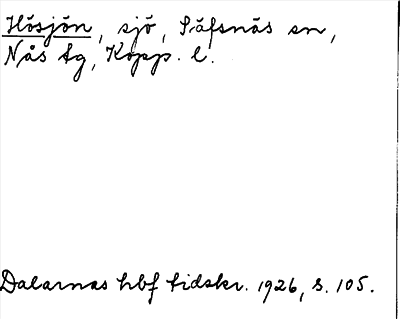 Hösjön, sjö, Säfsnäs sn,
Nås tg, Kopp. l.
Dalarnas hbf tidskr. 1926, s. 105.